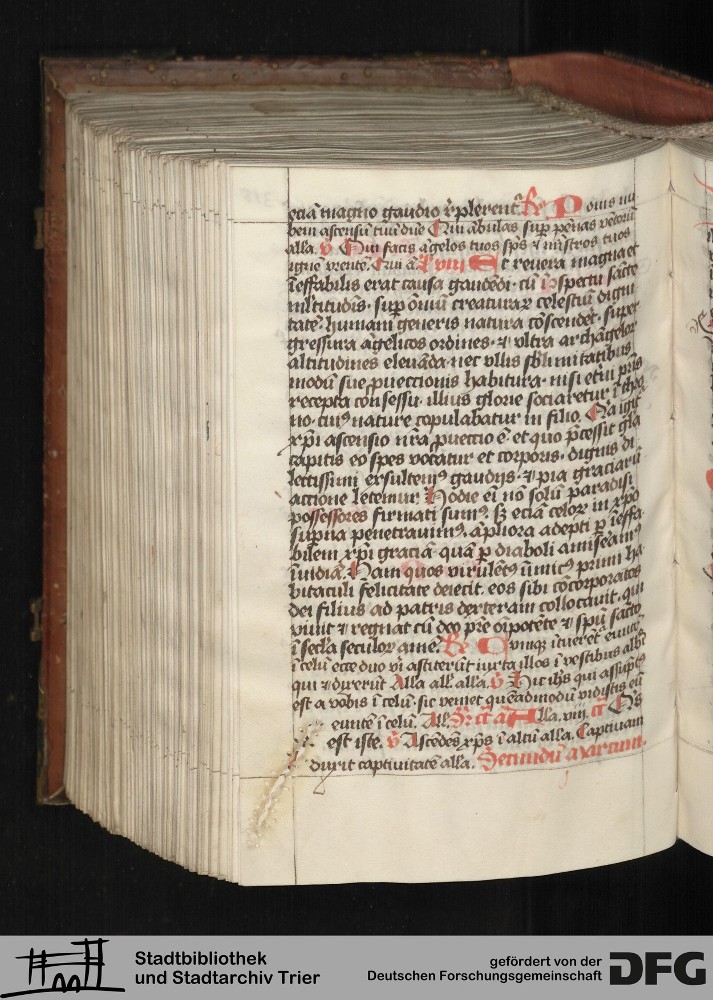 eciā magno gaudio rēplerent᷑. R̄ Ponis nu
bem ascensū tuū dn̄e Qui ābulas sup̄ pēnas vētorū
alla. v̄ Qui facis āgelos tuos sp̄s ⁊ mīstros tuos
ignē vrentē. Qui ā. L̄ viii Et revera magna et
īeffabilis erat causa gaudēdi· cū ī ꝯspectu sācte
ml̄titudīs· sup̄ oīm̄ creaturaꝝ celestiū digni
tatē· humani generis natura cōscenderet· super
gressura āgelicos ordines· ⁊ vltra archāgeloꝝ
altitudines elevāda· nec vllis sbl̄imitatibus
modū sue ꝓveccionis habitura· nisi et̄ni pr̄is
recepta consessu· illius glorie sociaretur ī thro
no· cui᷒ nature copulabatur in filio. Quia igit̄
xp̄i ascensio nr̄a ꝓveccio ē· et quo p̄cessit gl̄a
capitis eo spes vocatur et corporis· dignis di
lectissimi exsultem᷒ gaudijs· ⁊ pia graciarū
actione letemur. Hodie ei̅ nō solū paradisi
possessores firmati sum᷒· sꝫ eciā celoꝝ in xp̄o
sup̄na penetravim᷒· āpliora adepti ꝑ īeffa
bilem xp̄i graciā quā ꝑ diaboli amiseam᷒
īvidiā. Nam quos virulēt᷒ īimic᷒ primi ha
bitaculi felicitate deiecit· eos sibi cōcorporatos
dei filius ad patris dexteram collocavit· qui
vivit ⁊ regnat cū deo pr̄e oīpotēte ⁊ spū sācto
ī secl̄a seculoꝝ amē. R̄ Cūmqꝫ ītuerēt᷑ euntē
ī celū ecce duo vi astiterūt iuxta illos ī vestibus alb᷒
qui ⁊ dixerūt Alla all̄ alla. v̄ Hic ihs̄ qui assūpt᷒
est a vobis ī celū· sic veniet quēadmodū vidistis eū
euntē ī celū. All̄. Alla. viii. Q̄s
est iste. v̄ Ascēdēs xp̄s ī altū alla. Captivam
duxit captivitatē alla. Secundū marcum.
Stadtbibliothek
und Stadtarchiv Trier
gefördert von der
Deutschen Forschungsgemeinschaft
DFG